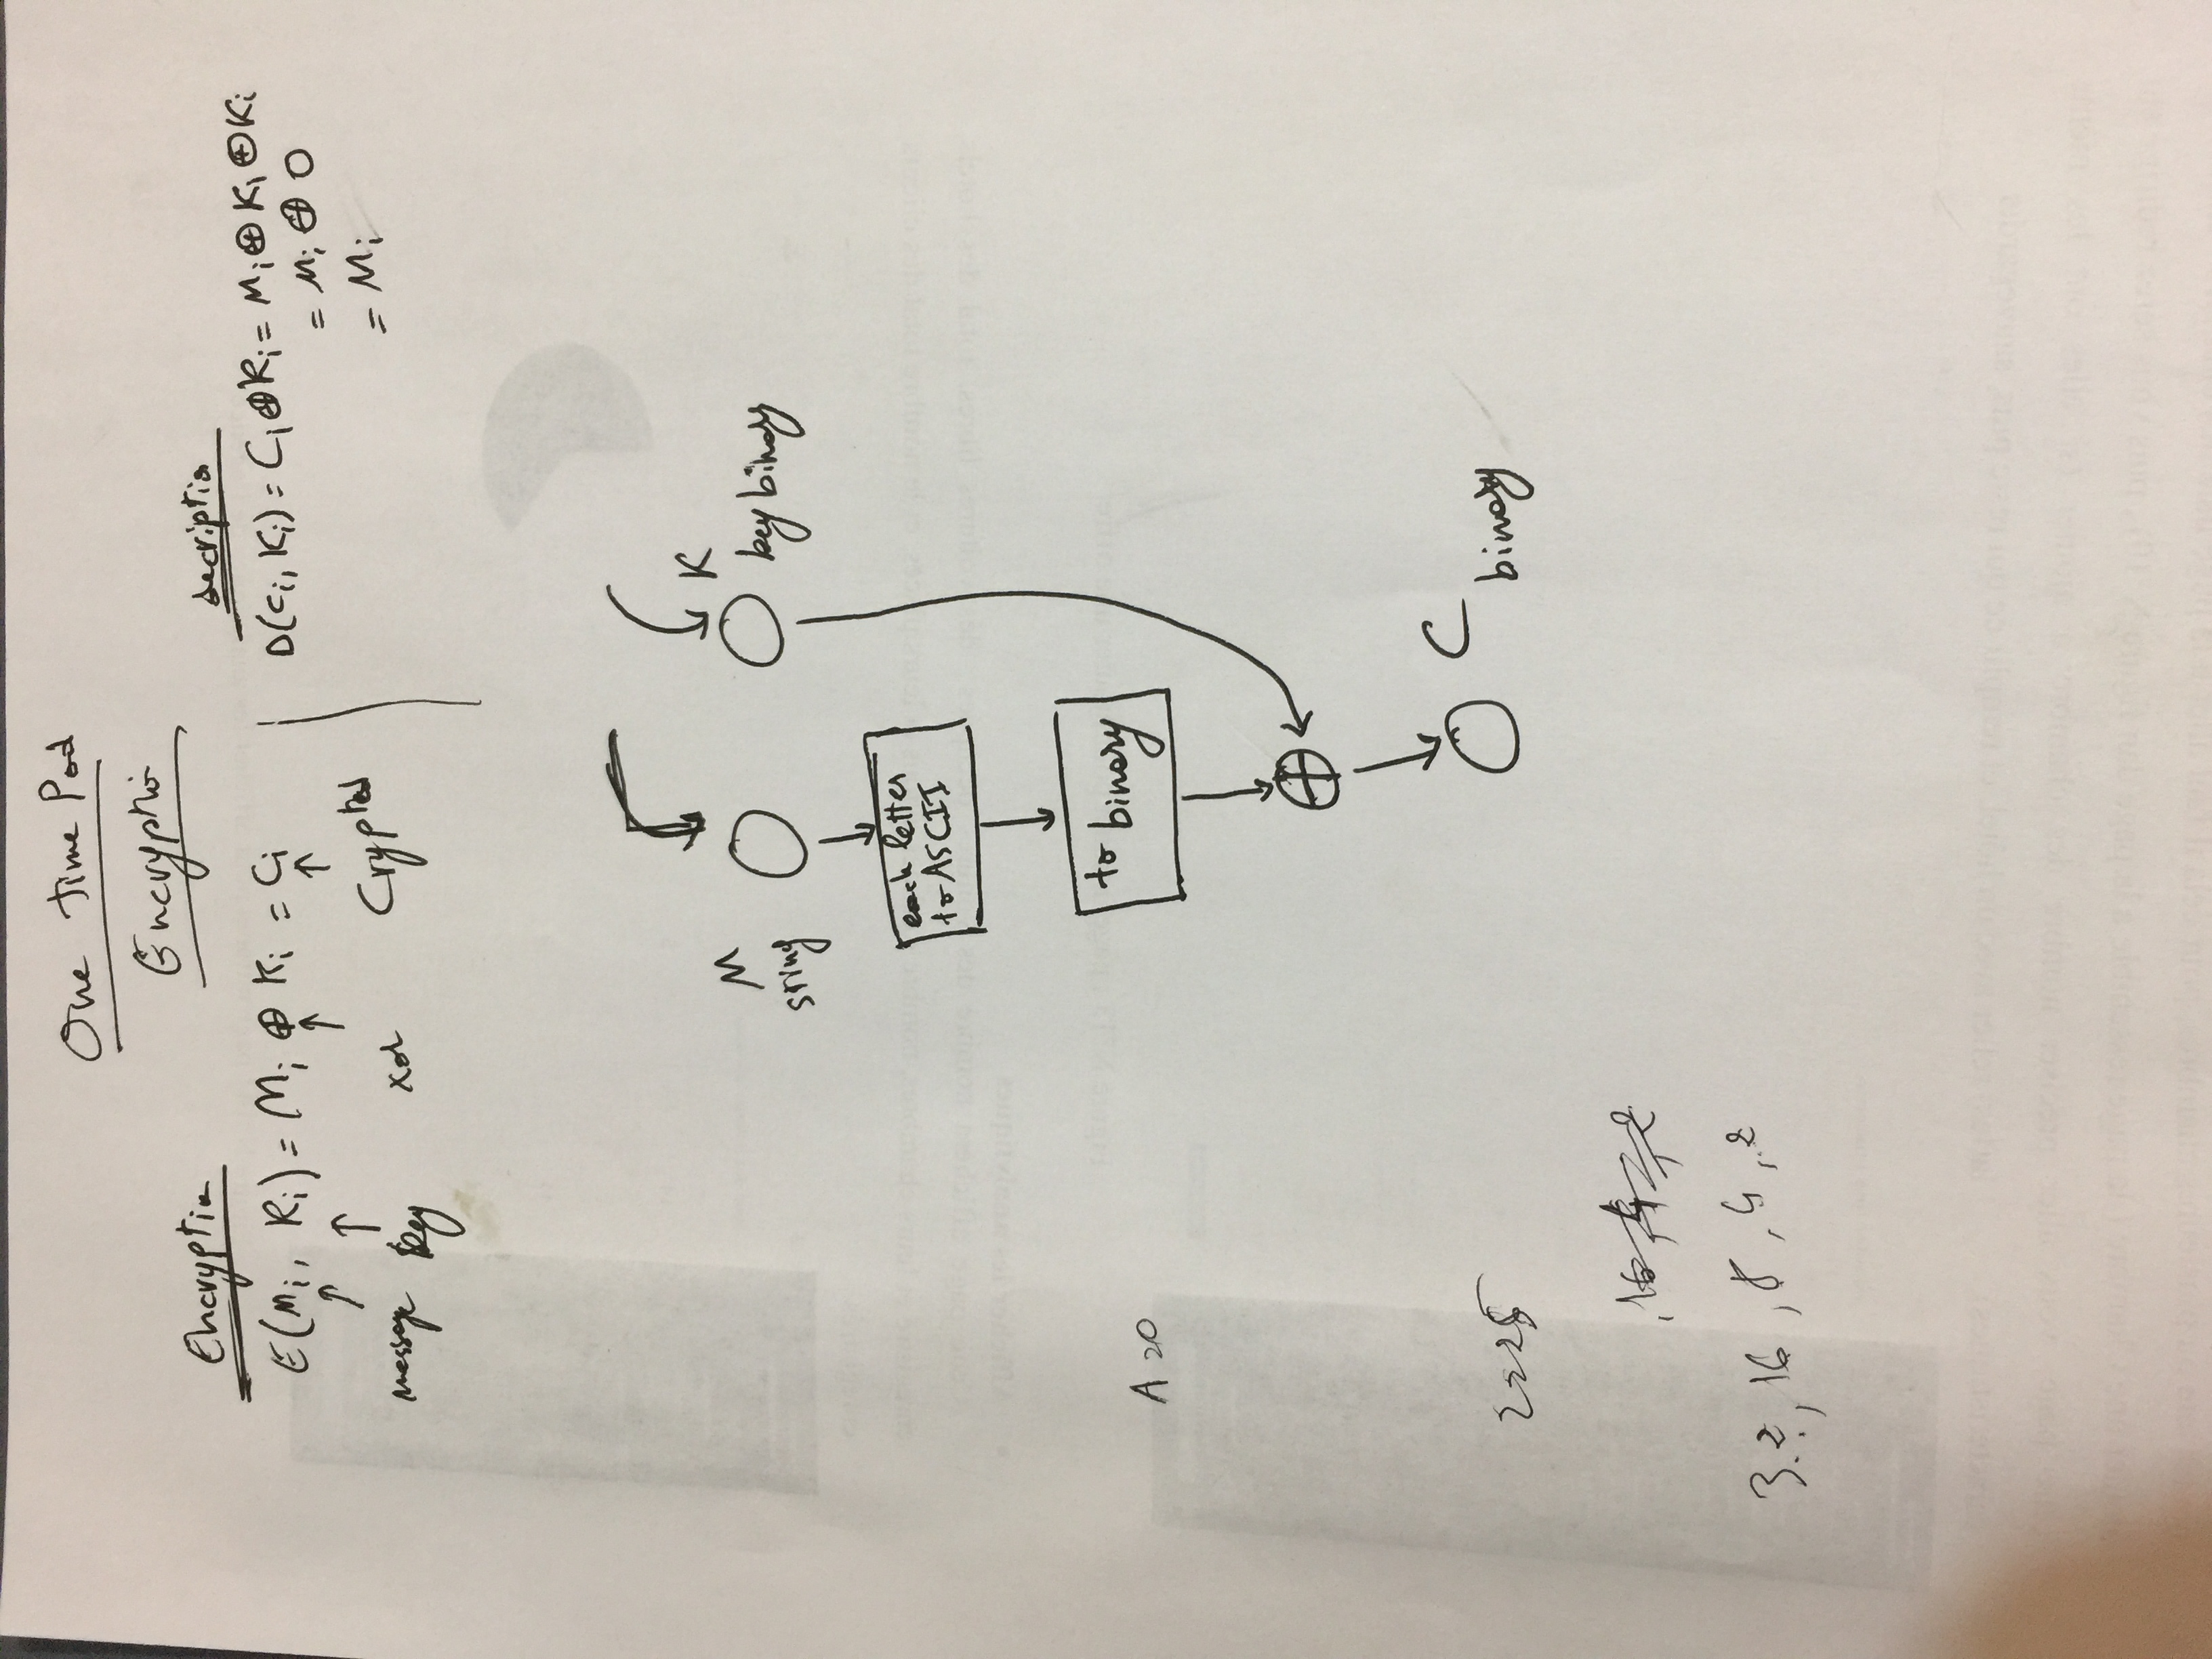 One Time Pad
Encryptio
Encryptio
E(Mi, Ki) = Mi ⊕ Ki = Ci
message key xor Crypted
decriptio
D(Ci, Ki) = Ci ⊕ Ki = Mi ⊕ Ki ⊕ Ki
= Mi ⊕ 0
= Mi
M
sring
K
key binary
each letter
to ASCII
to binary
⊕
C
binary
A 20
16
32, 16, 8, 4, 2